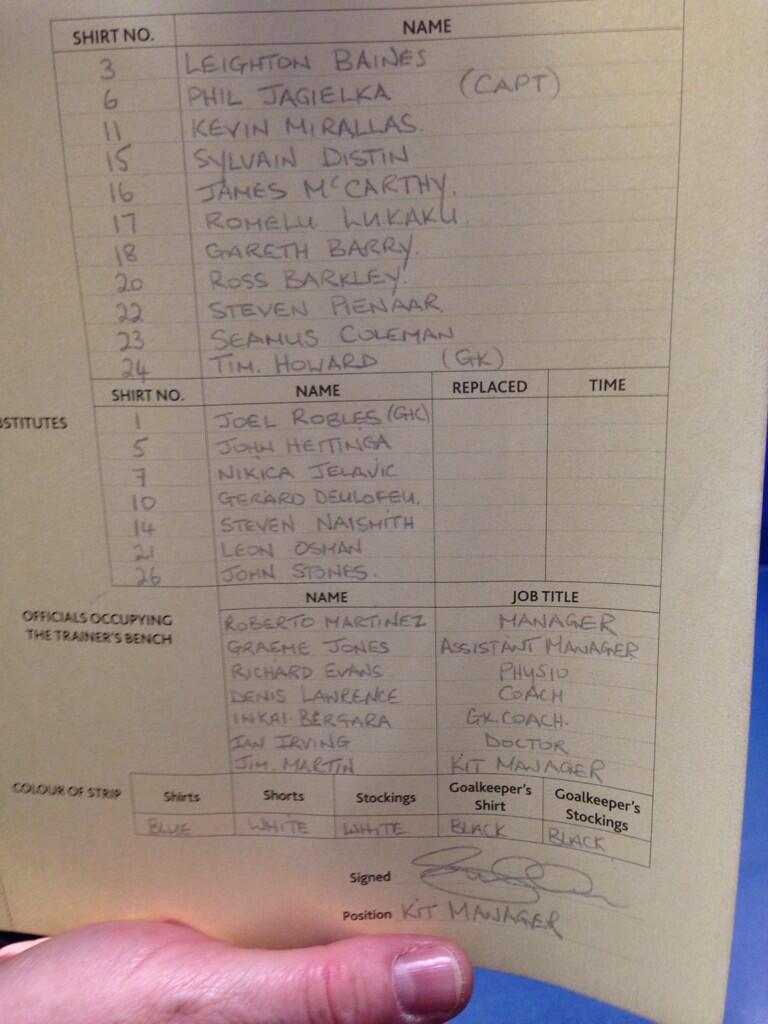 SHIRT NO. NAME
3 LEIGHTON BAINES
6 PHIL JAGIELKA (CAPT)
11 KEVIN MIRALLAS.
15 SYLVAIN DISTIN
16 JAMES McCARTHY.
17 ROMELU LUKAKU.
18 GARETH BARRY.
20 ROSS BARKLEY.
22 STEVEN PIENAAR.
23 SEAMUS COLEMAN
24 TIM. HOWARD (GK)
SHIRT NO. NAME REPLACED TIME
BSTITUTES
1 JOEL ROBLES (GK)
5 JOHN HEITINGA
7 NIKICA JELAVIC
10 GERARD DEULOFEU.
14 STEVEN NAISMITH
21 LEON OSMAN
26 JOHN STONES.
NAME JOB TITLE
OFFICIALS OCCUPYING
THE TRAINER'S BENCH
ROBERTO MARTINEZ MANAGER
GRAEME JONES ASSISTANT MANAGER
RICHARD EVANS PHYSIO
DENIS LAWRENCE COACH
INKAI-BERGARA GK.COACH.
IAN IRVING DOCTOR
JIM. MARTIN KIT MANAGER
COLOUR OF STRIP Shirts Shorts Stockings Goalkeeper's Shirt Goalkeeper's Stockings
BLUE WHITE WHITE BLACK BLACK
Signed
Position KIT MANAGER